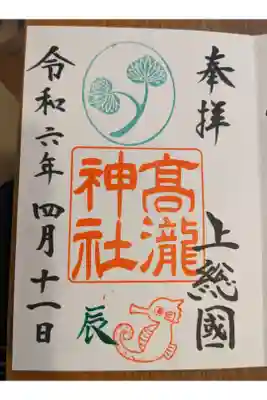 奉拝
上総國
髙瀧
神社
辰
令和六年四月十一日